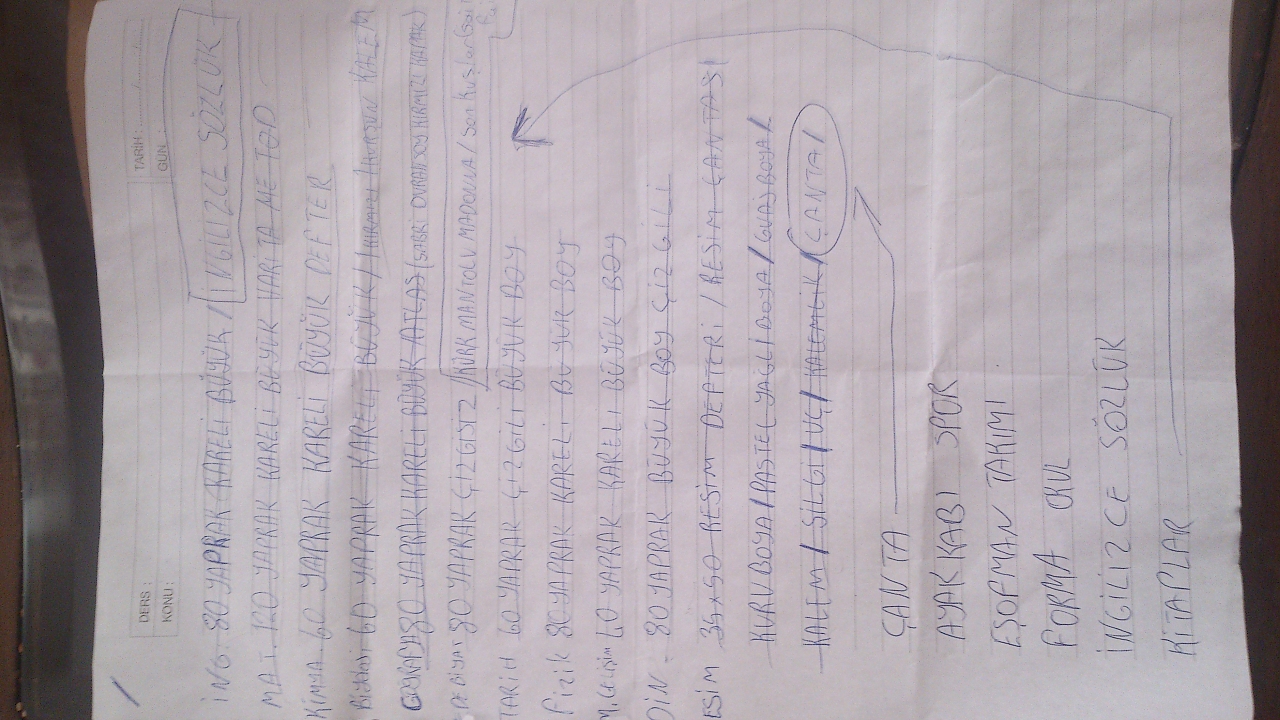 DERS :
KONU :
TARİH : ....../....../......
GÜN :
İNG: 80 YAPRAK KARELİ BÜYÜK / İNGİLİZCE SÖZLÜK
MAT. 120 YAPRAK KARELİ BÜYÜK VARİTA METOD
KİMYA 60 YAPRAK KARELİ BÜYÜK DEFTER
Biyoloji 60 YAPRAK KARELİ BÜYÜK / KIRMIZI / KURŞUN KALEM
80 YAPRAK KARELİ BÜYÜK ATLAS (SABRİ DURAN DOS KIRMIZI KAPAK)
DEBİYAT 80 YAPRAK ÇİZGİSİZ / KÜRK MANTOLU MADONNA / Son Kuşlar
TARİH 60 YAPRAK ÇİZGİLİ BÜYÜK BOY
Fizik 80 YAPRAK KARELİ BÜYÜK BOY
M. Gelişim 60 YAPRAK KARELİ BÜYÜK BOY
DİN: 80 YAPRAK BÜYÜK BOY ÇİZGİLİ
ESİM 34x50 RESİM DEFTERİ / RESİM ÇANTASI
KURU BOYA / PASTEL YAĞLI BOYA / GUAJ BOYA /
KALEM / SİLGİ / UÇ / KALEMLİK / ÇANTA /
ÇANTA
AYAKKABI SPOR
EŞOFMAN TAKIMI
FORMA OKUL
İNGİLİZCE SÖZLÜK
KİTAPLAR